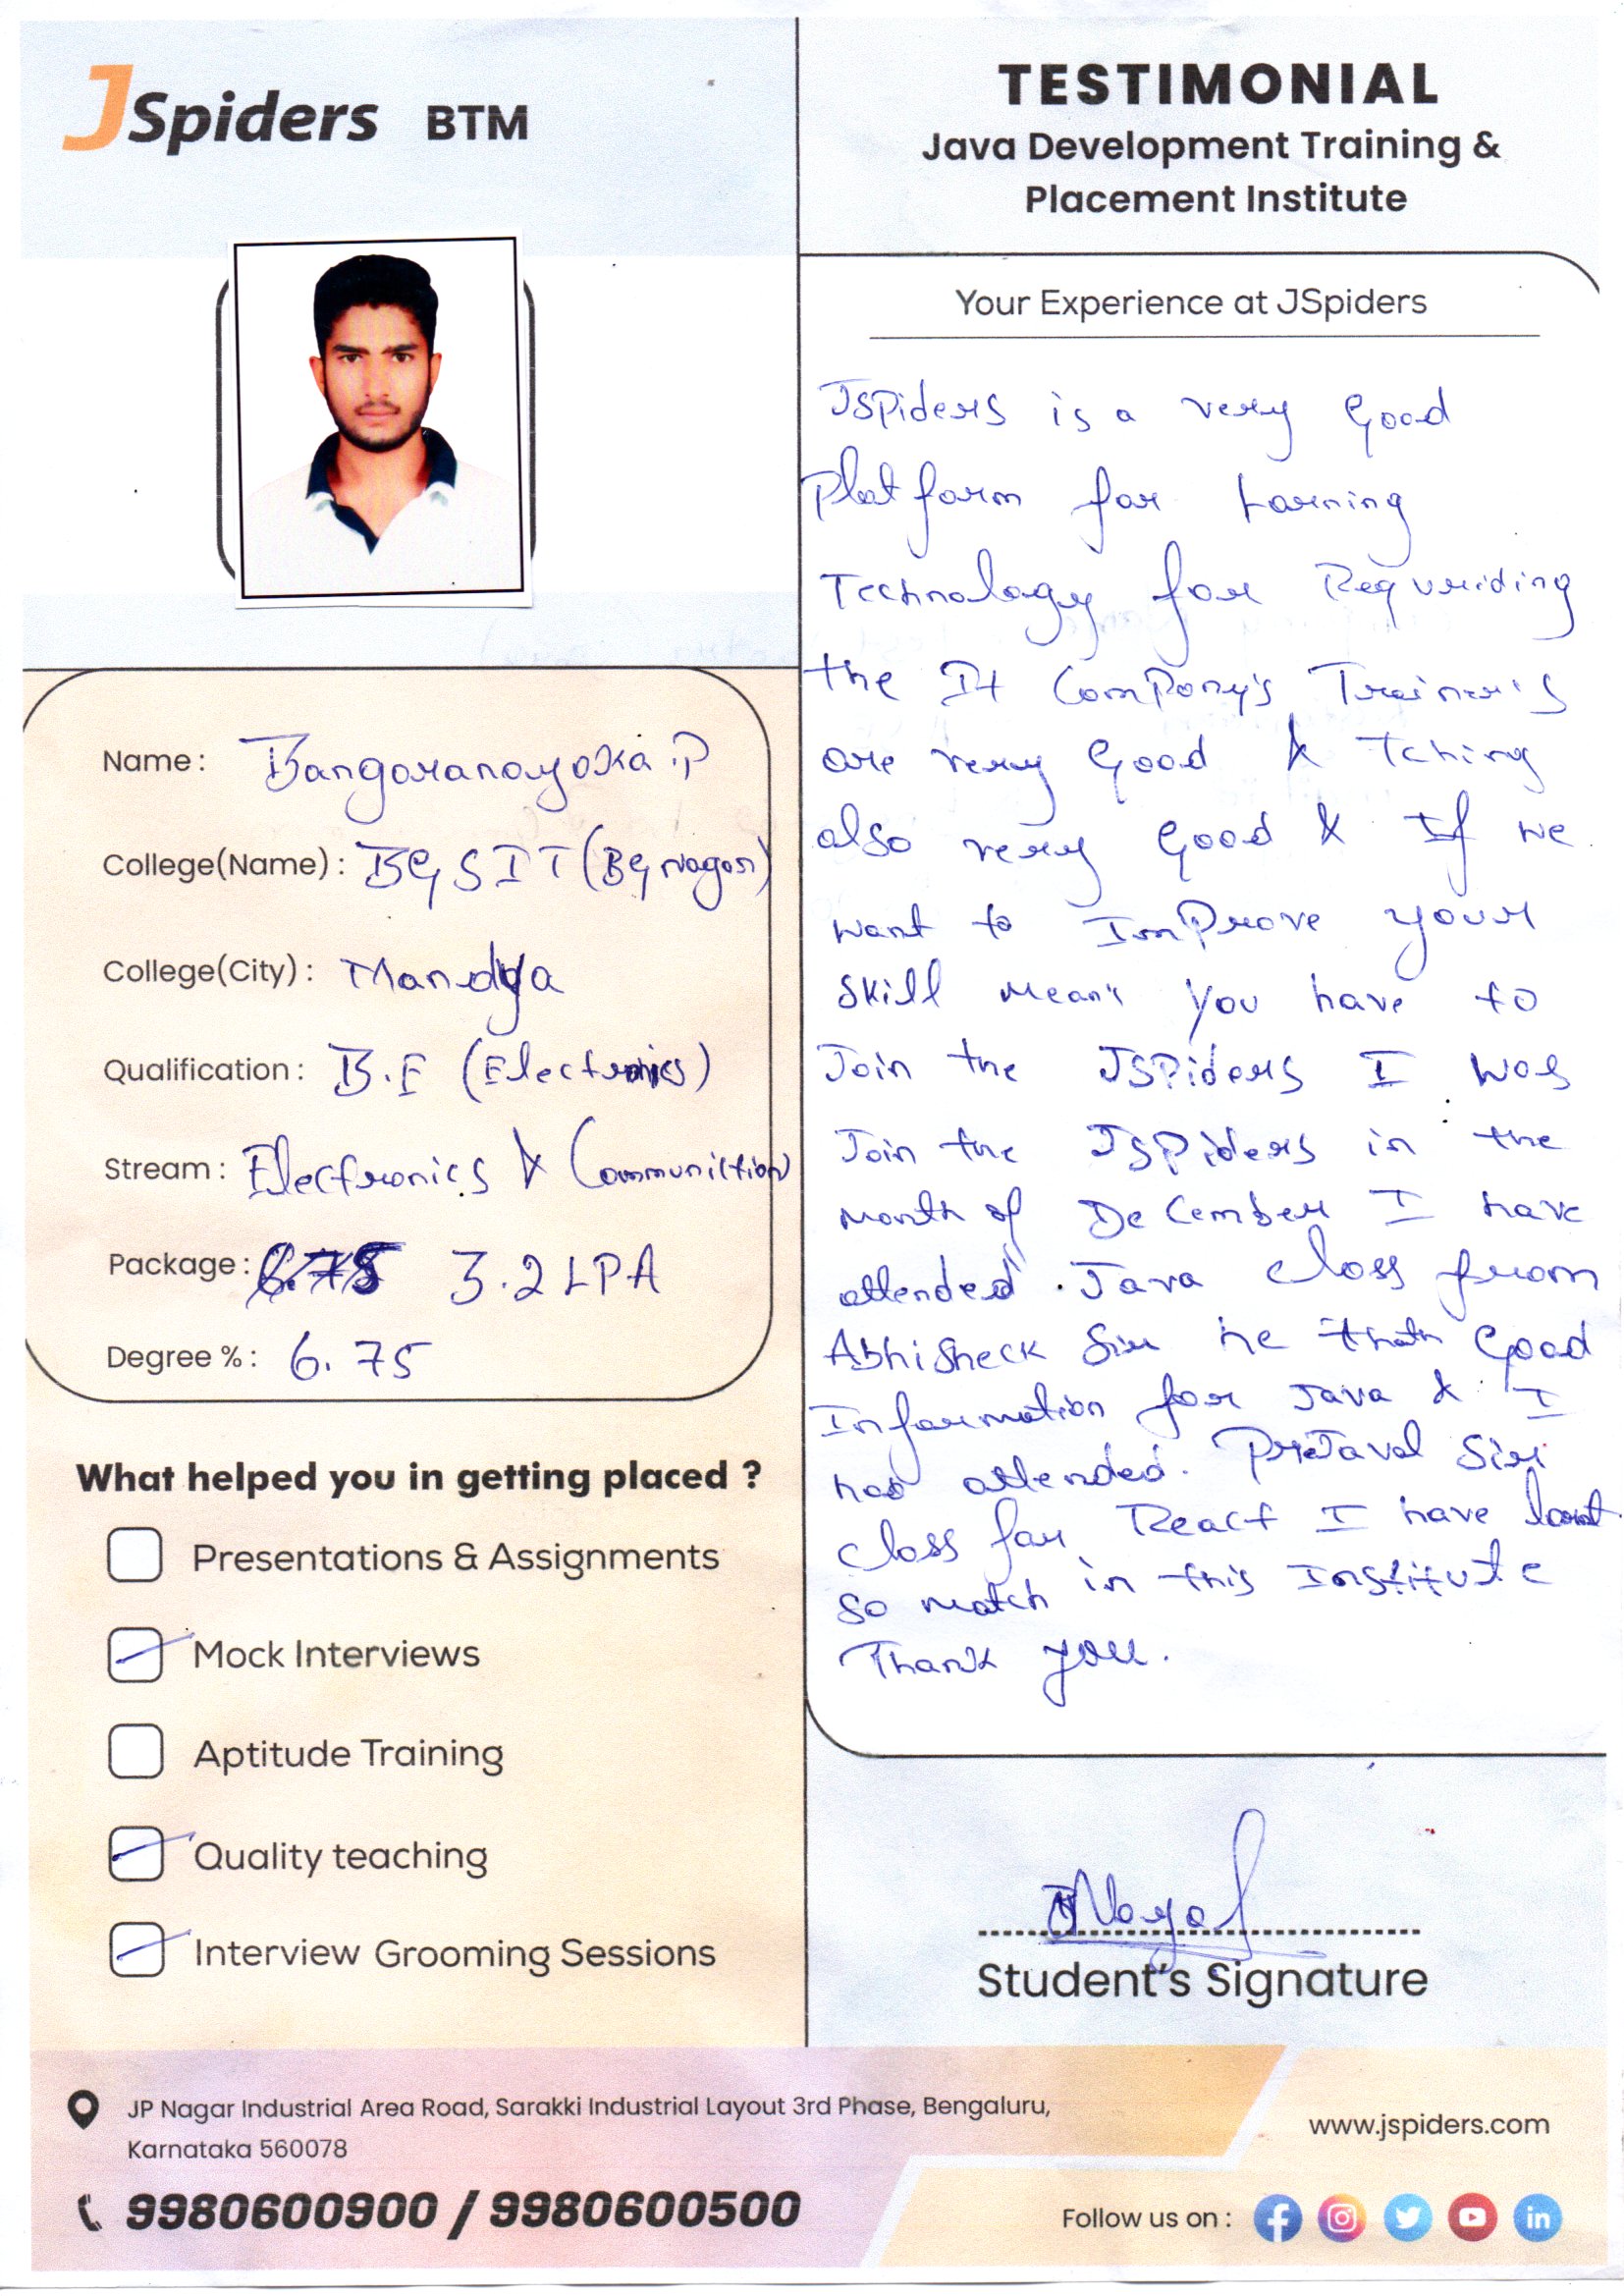 JSpiders BTM
Name : Bangaranayaka .P
College(Name) : BGSIT (BG nagar)
College(City) : Mandya
Qualification : B.E (Electronics)
Stream : Electronics & Communiction
Package : 6.75 3.2 LPA
Degree % : 6.75
What helped you in getting placed ?
Presentations & Assignments
Mock Interviews
Aptitude Training
Quality teaching
Interview Grooming Sessions
TESTIMONIAL
Java Development Training &
Placement Institute
Your Experience at JSpiders
JSPiders is a very Good
Platform for
Technology for
the It ComPany's Trainer's
are very Good & Tching
also very Good & If we
want to ImProve your
Skill Mean's You have to
Join the JSPiders I was
Join the JSPiders in the
month of December I have
attended . Java Class from
Abhisheck Sir he Good
Information for Java & I
has attended. Sir
class for React I have
so match in this Institute
Thank you.
Student's Signature
JP Nagar Industrial Area Road, Sarakki Industrial Layout 3rd Phase, Bengaluru,
Karnataka 560078
9980600900 / 9980600500
www.jspiders.com
Follow us on :